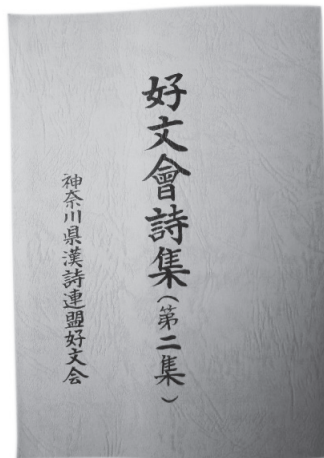 好文會詩集（第二集）
神奈川県漢詩連盟好文会